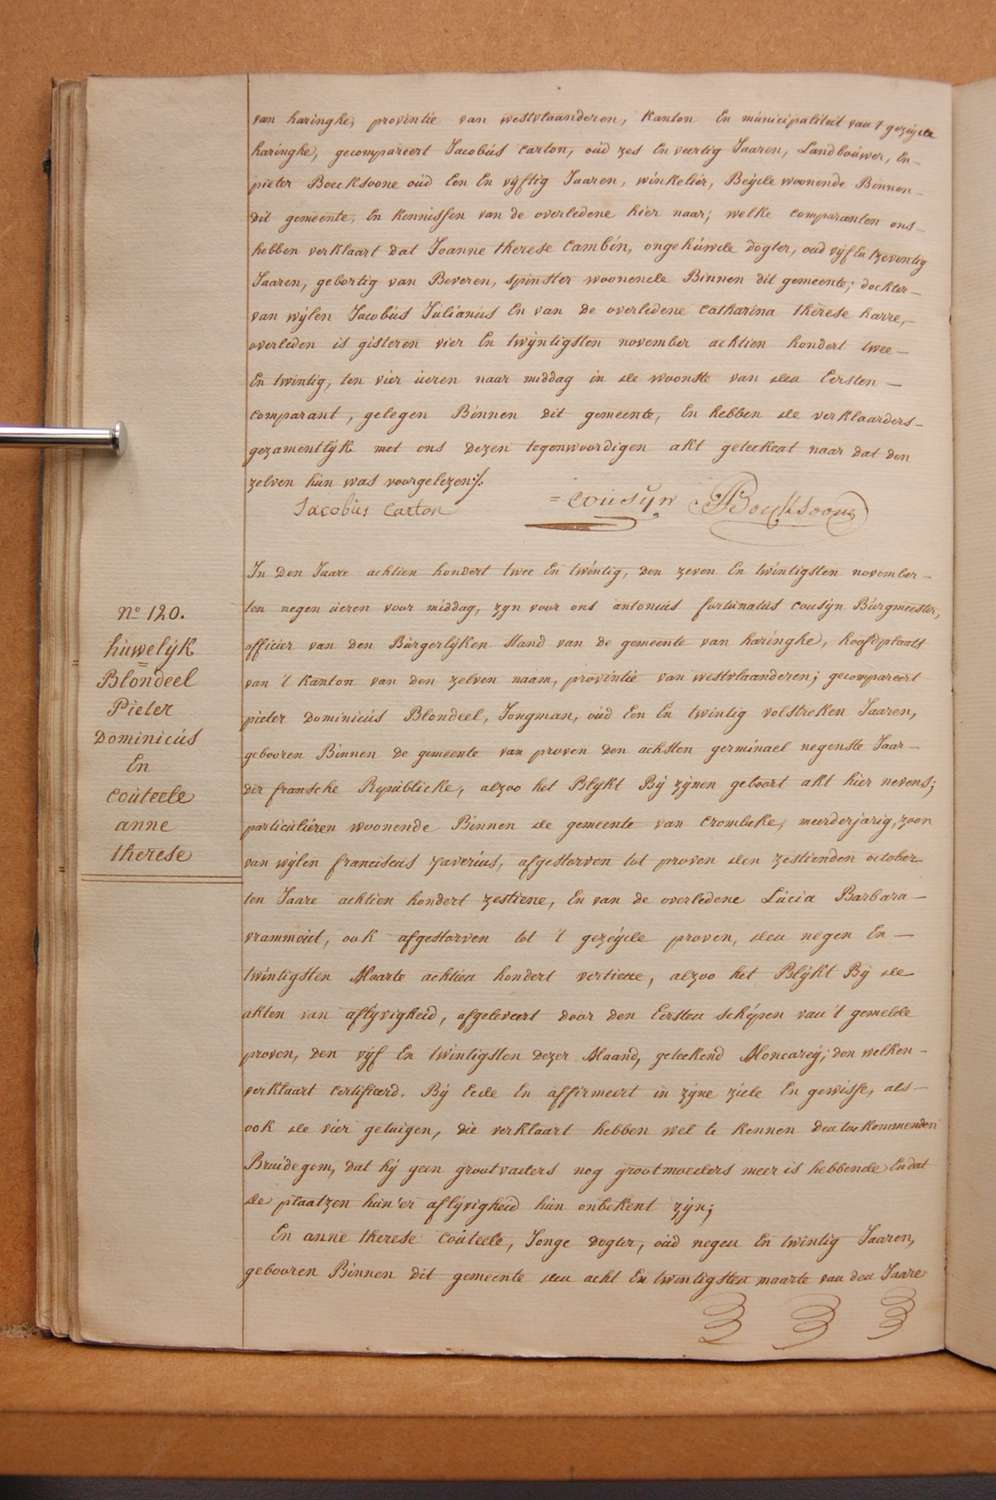 van haringhe; provintie van westvlaanderen, kanton En municipaliteit van 't gezeyde
haringhe, gecompareert Jacobús Carton, oúd zes En veertig Jaaren, Landboúwer, En
pieter Boecksoone oúd Een En vÿftig Jaaren, winkelier, Beÿde woonende Binnen
dit gemeente, En kennissen van de overledene hier naar; welke comparanten ons
hebben verklaart dat Joanne therese Cambÿn, ongehúwde dogter, oud vÿf En tzeventig
Jaaren, gebortig van Beveren, spinster woonende Binnen dit gemeente; dochter
van wÿlen Jacobús Julianús En van de overledene Catharina therese harre,
overleden is gisteren vier En twÿntigsten november achtien hondert twee
En twintig, ten vier úeren naar middag in de woonste van den Eersten
comparant, gelegen Binnen dit gemeente, En hebben de verklaarders
gezamentlÿk met ons dezen tegenwoordigen akt geteekent naar dat den
zelven hún was voorgelezen ;/.
Jacobús Carton = Cousyn Boecksoone
In Den Jaare achtien hondert twee En twintig, den zeven En twintigsten november
ten negen úeren voor middag, zyn voor ons antoniús fortúnatús coúsÿn Búrgmeester,
officier van den Búrgerlÿken Stand van de gemeente van haringhe, hoofdplaats
van 't kanton van den zelven naam, provintie van westvlaanderen; gecompareert
pieter Dominicús Blondeel, Jongman, oúd Een En twintig volstreken Jaaren,
gebooren Binnen de gemeente van proven den achsten germinael negenste Jaar
der fransche Repúblicke, alzoo het Blÿkt Bÿ zÿnen geboort akt hier nevens;
particúlieren woonende Binnen de gemeente van Crombeke, meerderjarig, zoon
van wÿlen franciscus Xaveriús, afgestorven tot proven den zestienden october
ten Jaare achtien hondert zestiene, En van de overledene Lúcia Barbara
vrammoút, ook afgestorven tot 't gezeÿde proven, den negen En
twintigsten Maarte achtien hondert vertiene, alzoo het Blÿkt Bÿ de
akten van aflÿvigheid, afgelevert door den Eersten schépen van 't gemelde
proven, den vÿf En twintigsten dezer Maand, geteekend Moncareÿ; den welken
verklaart Certifieerd. Bÿ Eede En affirmeert in zÿne ziele En gewisse, als
ook de vier getuigen, die verklaart hebben wel te kennen den toekommenden
Bruidegom, dat hÿ geen grootvaders nog grootmoeders meer is hebbende En dat
de plaatzen hún'er aflÿvigheid hún onbekent zÿn;
En anne therese Coúteele, Jonge Dogter, oúd negen En twintig Jaaren,
gebooren Binnen dit gemeente den acht En twintigsten maarte van den Jaare
No 120.
húwelÿk
=
Blondeel
Pieter
Dominicús
En
Coúteele
anne
therese